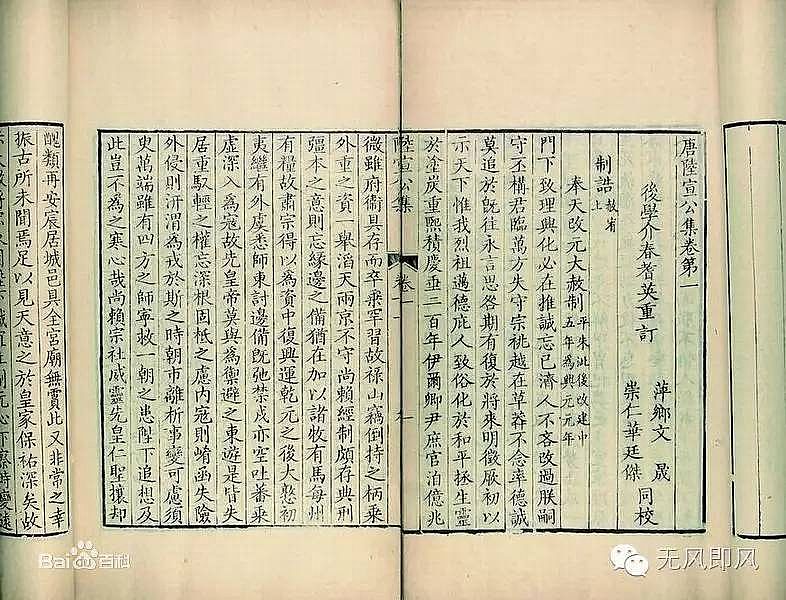 唐陸宣公集卷第一
後學介春耆英重訂
萍鄉文 晟
崇仁華廷傑
同校
制誥 赦宥上
奉天改元大赦制 平朱泚後改建中五年為興元元年
門下致理興化必在推誠忘己濟人不吝改過朕嗣
守丕構君臨萬方失守宗祧越在草莽不念率德誠
莫追於既往永言思咎期有復於將來明徵厥初以
示天下惟我烈祖邁德庇人致俗化於和平拯生靈
於塗炭重熙積慶垂二百年伊爾卿尹庶官洎億兆
陸宣公集 卷一 一
微雖府衛具存而卒乘罕習故祿山竊倒持之柄乘
外重之資一舉滔天兩京不守尚賴經制頗存典刑
彊本之意則忘緣邊之備猶在加以諸牧有馬每州
有糧故肅宗得以為資中復興運乾元之後大憝初
夷繼有外虞悉師東討邊備既弛禁戎亦空吐蕃乘
虛深入為寇故先皇帝莫與為禦避之東遊是皆失
居重馭輕之權忘深根固柢之慮內寇則崤函失險
外侵則汧渭為戎於斯之時朝市離析事變可慮須
臾萬端雖有四方之師寧救一朝之患陛下追想及
此豈不為之寒心哉尚賴宗社威靈先皇仁聖攘却
醜類再安宸居城邑具全宮廟無霣此又非常之幸
振古所未聞焉足以見天意之於皇家保祐深矣故
Baidu百科
无风即风